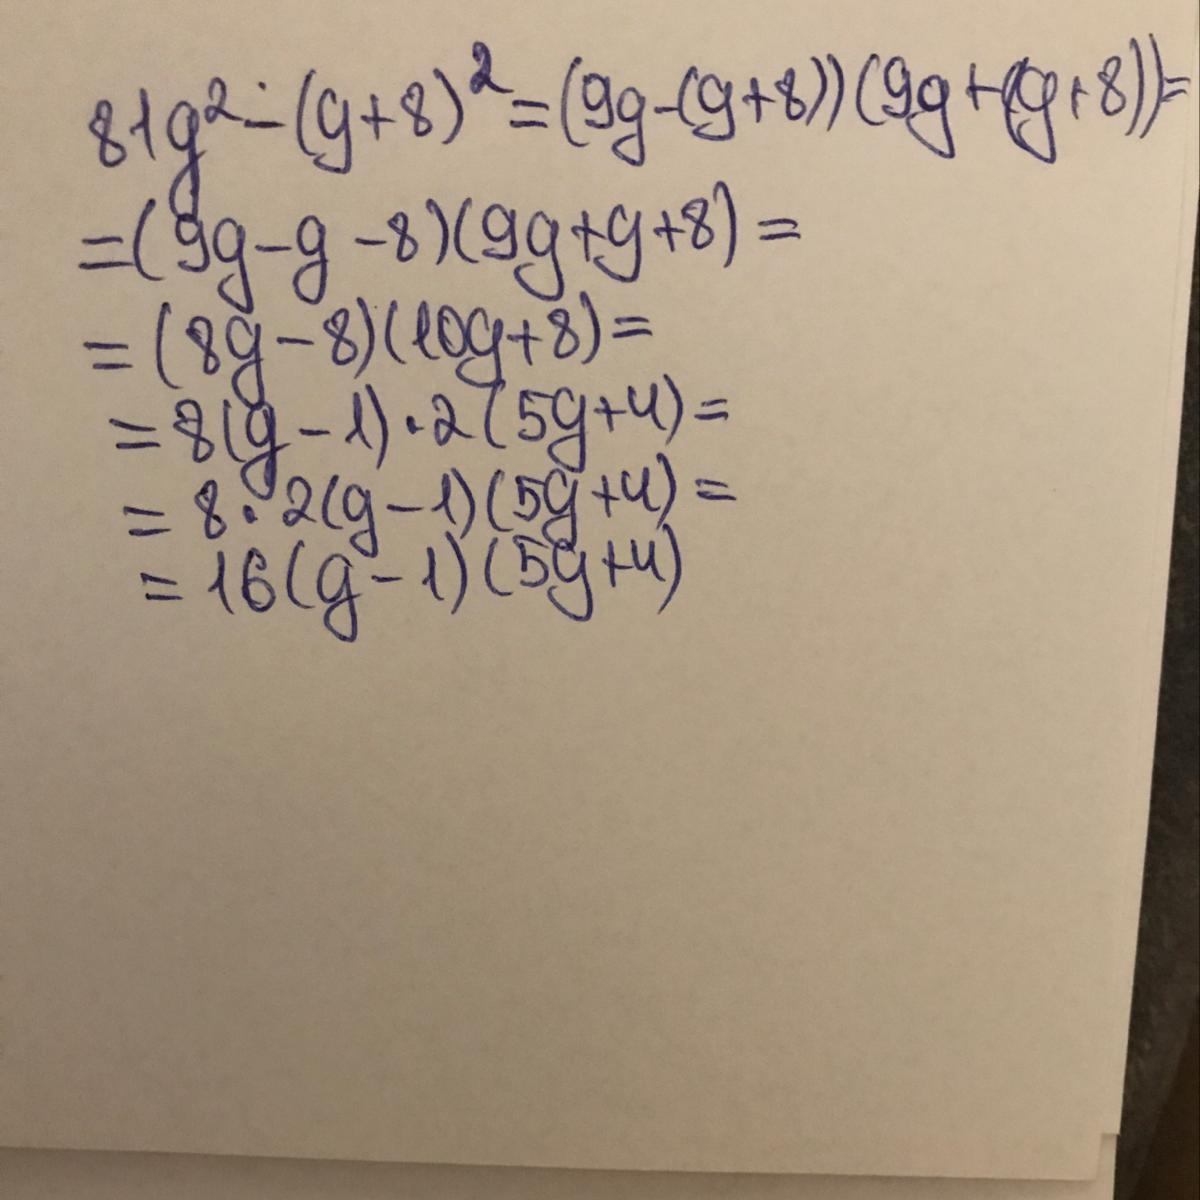 81g² - (g+8)² = (9g-(g+8))(9g+(g+8))=
=(9g-g-8)(9g+g+8)=
=(8g-8)(10g+8)=
=8(g-1)·2(5g+4)=
=8·2(g-1)(5g+4)=
=16(g-1)(5g+4)